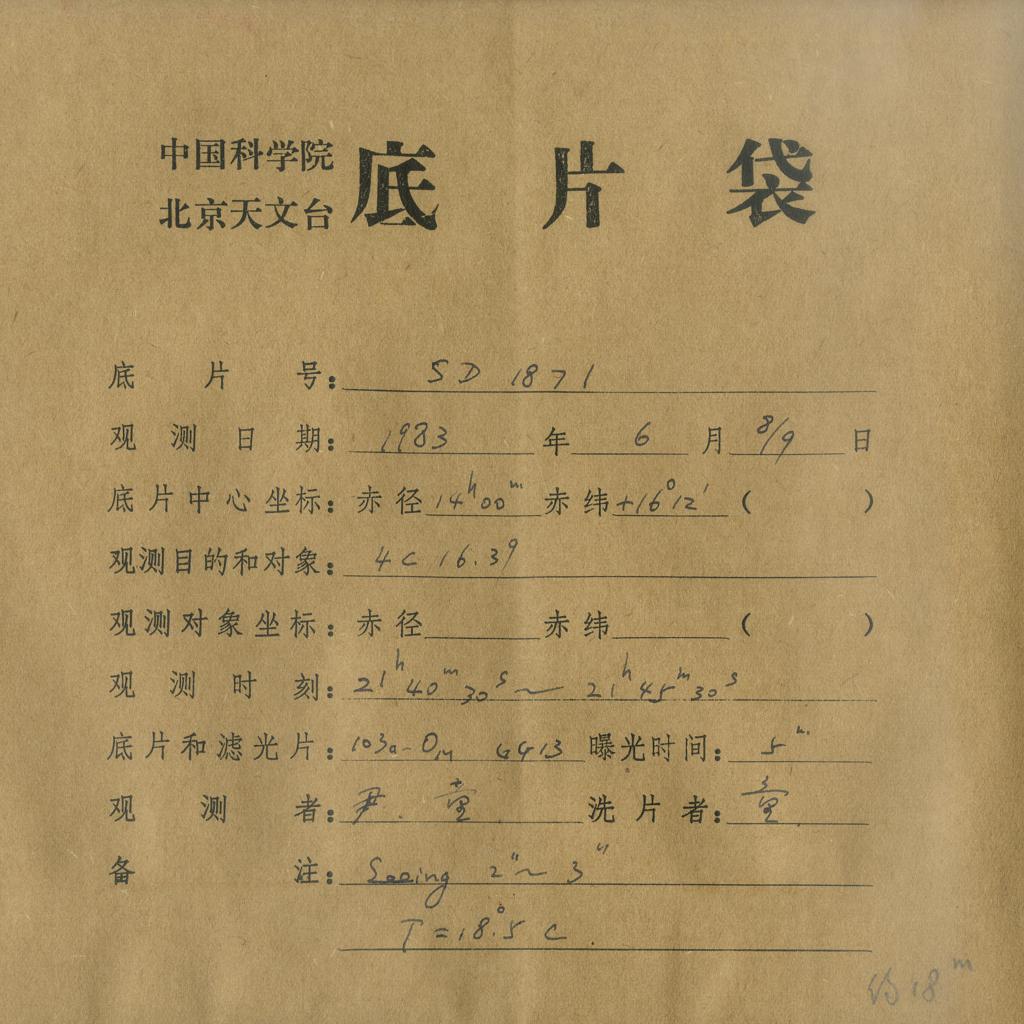 中国科学院
北京天文台 底片袋
底片号：SD 1871
观测日期：1983年6月8/9日
底片中心坐标：赤径14ʰ00ᵐ赤纬+16°12′（ ）
观测目的和对象：4C 16.39
观测对象坐标：赤径 赤纬 （ ）
观测时刻：21ʰ40ᵐ30ˢ～21ʰ45ᵐ30ˢ
底片和滤光片：103a-O GG13 曝光时间：5ᵐ
观测者：尹.童 洗片者：童
备注：Seeing 2″～3″
T=18°.5 C.
约18ᵐ